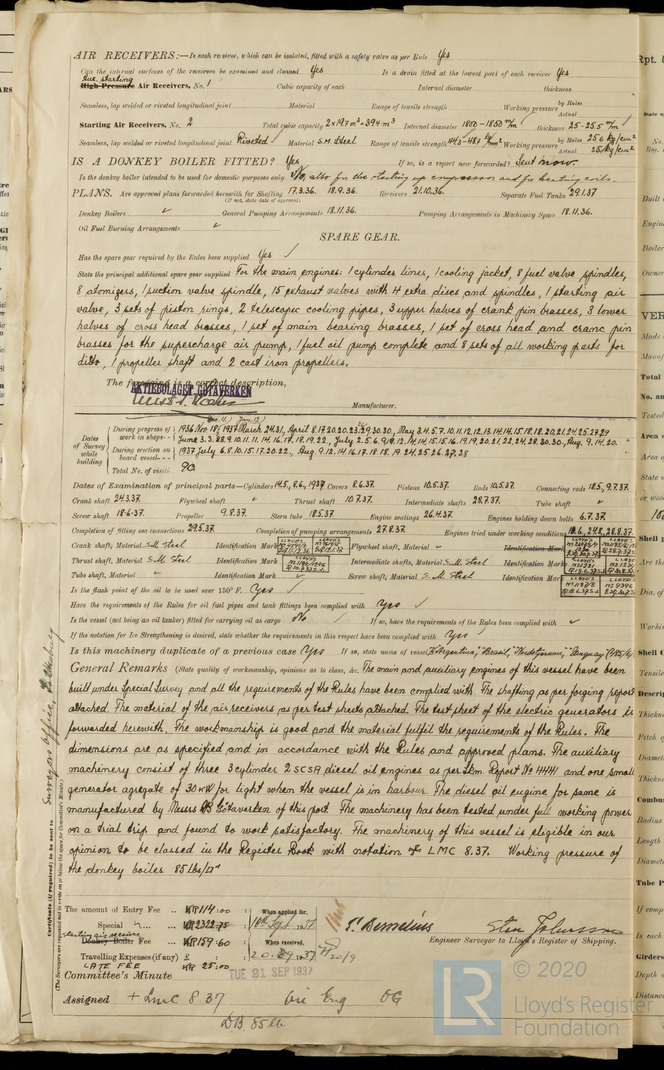 AIR RECEIVERS:—Is each receiver, which can be isolated, fitted with a safety valve as per Rule Yes
Can the internal surfaces of the receivers be examined and cleaned Yes Is a drain fitted at the lowest part of each receiver Yes
Aux. starting
High Pressure Air Receivers, No. 1 Cubic capacity of each Internal diameter thickness
Seamless, lap welded or riveted longitudinal joint Material Range of tensile strength Working pressure by Rules Actual
Starting Air Receivers, No. 2 Total cubic capacity 2×19.7 m³=39.4 m³ Internal diameter 1800-1850 m/m thickness 25-25.5 m/m
Seamless, lap welded or riveted longitudinal joint Riveted Material S.M. Steel Range of tensile strength Working pressure by Rules 25.6 kg/cm² Actual 25 kg/cm²
IS A DONKEY BOILER FITTED? Yes If so, is a report now forwarded? Sent now.
Is the donkey boiler intended to be used for domestic purposes only No, also for the starting up compressor and for heating coils.
PLANS. Are approved plans forwarded herewith for Shafting 17.3.36. 18.9.36. Receivers 21.10.36. Separate Fuel Tanks 29.1.37
(If not, state date of approval)
Donkey Boilers General Pumping Arrangements 18.11.36. Pumping Arrangements in Machinery Space 18.11.36.
Oil Fuel Burning Arrangements
SPARE GEAR.
Has the spare gear required by the Rules been supplied Yes
State the principal additional spare gear supplied For the main engines: 1 cylinder liner, 1 cooling jacket, 8 fuel valve spindles,
8 atomizers, 1 suction valve spindle, 15 exhaust valves with 4 extra discs and spindles, 1 starting air
valve, 3 sets of piston rings, 2 telescopic cooling pipes, 3 upper halves of crank pin brasses, 3 lower
halves of cross head brasses, 1 set of main bearing brasses, 1 set of cross head and crank pin
brasses for the supercharge air pump, 1 fuel oil pump complete and 8 sets of all working parts for
ditto, 1 propeller shaft and 2 cast iron propellers.
The foregoing is a correct description,
AKTIEBOLAGET GÖTAVERKEN
Manufacturer.
Dates of Survey while building
During progress of work in shops - - 1936 Nov 18, 1937 March 24.31, April 8.17.20.20.23.29.30.30., May 3.4.5.7.10.11.12.12.13.14.14.15.18.18.20.21.24.25.27.29
June 3.3.8.8.9.10.11.11.14.16.17.18.19.22., July 2.5.6.9.10.12.14.14.15.15.16.19.19.20.21.22.24.28.30.30., Aug. 9.14.20.
During erection on board vessel - - - 1937 July 6.8.10.15.17.20.22., Aug. 9.12.14.16.17.18.18.19.24.25.26.27.28
Total No. of visits 90
Dates of Examination of principal parts—Cylinders 14.5, 8.6, 1937 Covers 8.6.37. Pistons 10.5.37. Rods 10.5.37. Connecting rods 18.5, 9.7.37.
Crank shaft 24.3.37. Flywheel shaft Thrust shaft 10.7.37. Intermediate shafts 28.7.37. Tube shaft
Screw shaft 18.6.37. Propeller 9.8.37. Stern tube 18.5.37. Engine seatings 26.4.37. Engines holding down bolts 6.7.37.
Completion of fitting sea connections 29.5.37. Completion of pumping arrangements 27.8.37. Engines tried under working conditions 18.6, 24.8, 28.8.37.
Crank shaft, Material S.M. Steel Identification Mark Flywheel shaft, Material Identification Mark
Thrust shaft, Material S.M. Steel Identification Mark Intermediate shafts, Material S.M. Steel Identification Marks
Tube shaft, Material Identification Mark Screw shaft, Material S.M. Steel Identification Mark
Is the flash point of the oil to be used over 150° F. Yes
Have the requirements of the Rules for oil fuel pipes and tank fittings been complied with Yes
Is the vessel (not being an oil tanker) fitted for carrying oil as cargo No If so, have the requirements of the Rules been complied with
If the notation for Ice Strengthening is desired, state whether the requirements in this respect have been complied with Yes
Is this machinery duplicate of a previous case Yes If so, state name of vessel "Argentina", "Brasil",
General Remarks (State quality of workmanship, opinions as to class, &c. The main and auxiliary engines of this vessel have been
built under Special Survey and all the requirements of the Rules have been complied with. The shafting as per forging report
attached. The material of the air receivers as per test sheets attached. The test sheet of the electric generators is
forwarded herewith. The workmanship is good and the material fulfil the requirements of the Rules. The
dimensions are as specified and in accordance with the Rules and approved plans. The auxiliary
machinery consist of three 3 cylinder 2 SCSA diesel oil engines as per Skm. Report No 4441 and one small
generator agregate of 30 KW for light when the vessel is in harbour. The diesel oil engine for same is
manufactured by Messrs AB Götaverken of this port. The machinery has been tested under full working power
on a trial trip and found to work satisfactory. The machinery of this vessel is eligible in our
opinion to be classed in the Register Book with notation of LMC 8.37. Working pressure of
the donkey boiler 85 lbs/□"
The amount of Entry Fee .. KR 114:00 When applied for,
Special .. KR 2322.75 10th Sept. 1937
starting air receivers
Donkey Boiler Fee .. KR 159.60 When received,
Travelling Expenses (if any) £ 20.9.1937
LATE FEE KR 25:00
Engineer Surveyor to Lloyd's Register of Shipping.
Committee's Minute TUE 21 SEP 1937
Assigned + LMC 8.37 Oil Eng OG
DB 85 lb
Certificate (if required) to be sent to Surveyor Office,
(The Surveyors are requested not to write on or below the space for Committee's Minute.)
LR © 2020
Lloyd's Register
Foundation